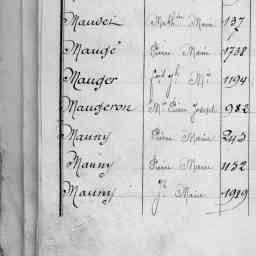 Mauvoi Math.in Marie 137
Maugé Pierre Marie 1738
Mauger 1194
Maugeron M.ie Pierre Joseph 982
Mauny Pierre Marie 293
Mauny Pierre Marie 1152
Mauny J. Marie 1919